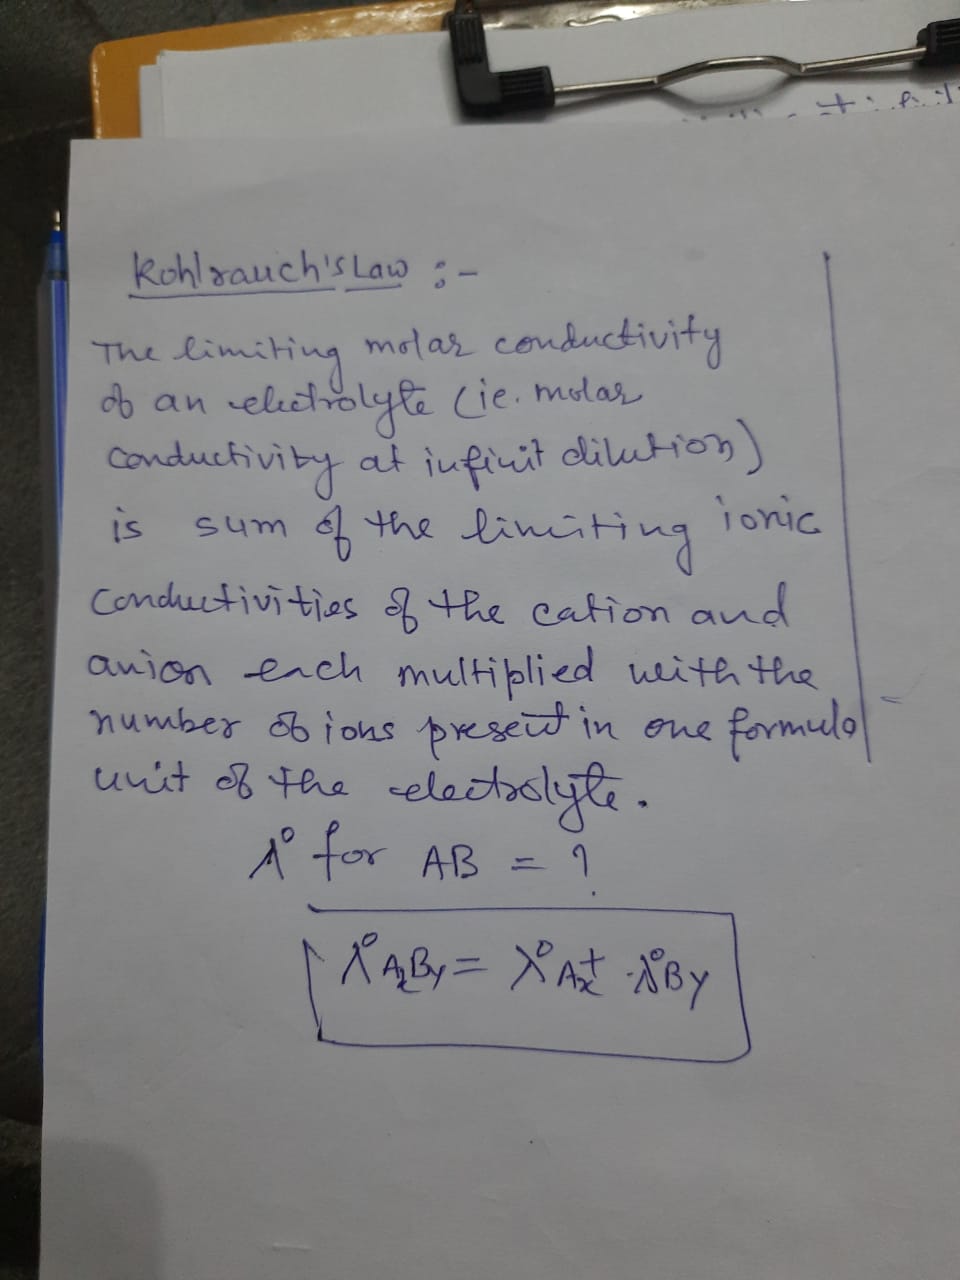 Kohlrauch's Law :-
The limiting molar conductivity
of an electrolyte (ie. molar
conductivity at infinit dilution)
is sum of the limiting ionic
conductivities of the cation and
anion each multiplied with the
number of ions present in one formula
unit of the electrolyte.
λ° for AB = ?
λ°AxBy = λ°Ax+ · λ°By